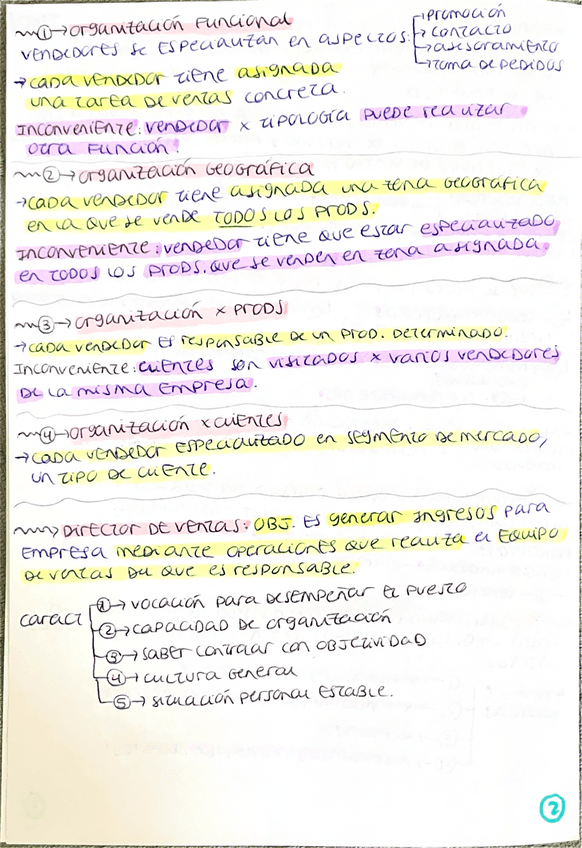 ①→organización Funcional
vendedores se especializan en aspectos:
→promoción
→contacto
→asesoramiento
→toma de pedidos
→cada vendedor tiene asignada
una tarea de ventas concreta.
Inconveniente: vendedor x tipología puede realizar
otra función.
②→organización Geográfica
→cada vendedor tiene asignada una zona geográfica
en la que se vende TODOS los PRODS.
Inconveniente: vendedor tiene que estar especializado
en TODOS los PRODS. que se venden en zona asignada.
③→organización x PRODS
→cada vendedor es responsable de un PROD. determinado.
Inconveniente: clientes son visitados x varios vendedores
de la misma empresa.
④→organización x clientes
→cada vendedor especializado en segmento de mercado,
un tipo de cliente.
Director de ventas: OBJ. es generar ingresos para
empresa mediante operaciones que realiza el Equipo
de ventas del que es responsable.
caract
①→ vocación para desempeñar el puesto
②→ capacidad de organización
③→ saber contratar con objetividad
④→ cultura general
⑤→ situación personal estable.
2